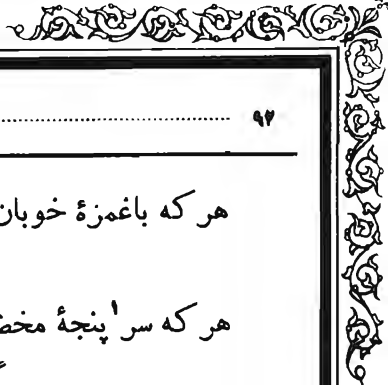 ۹۲
هر که با غمزهٔ خوبان
هر که سر پنجهٔ